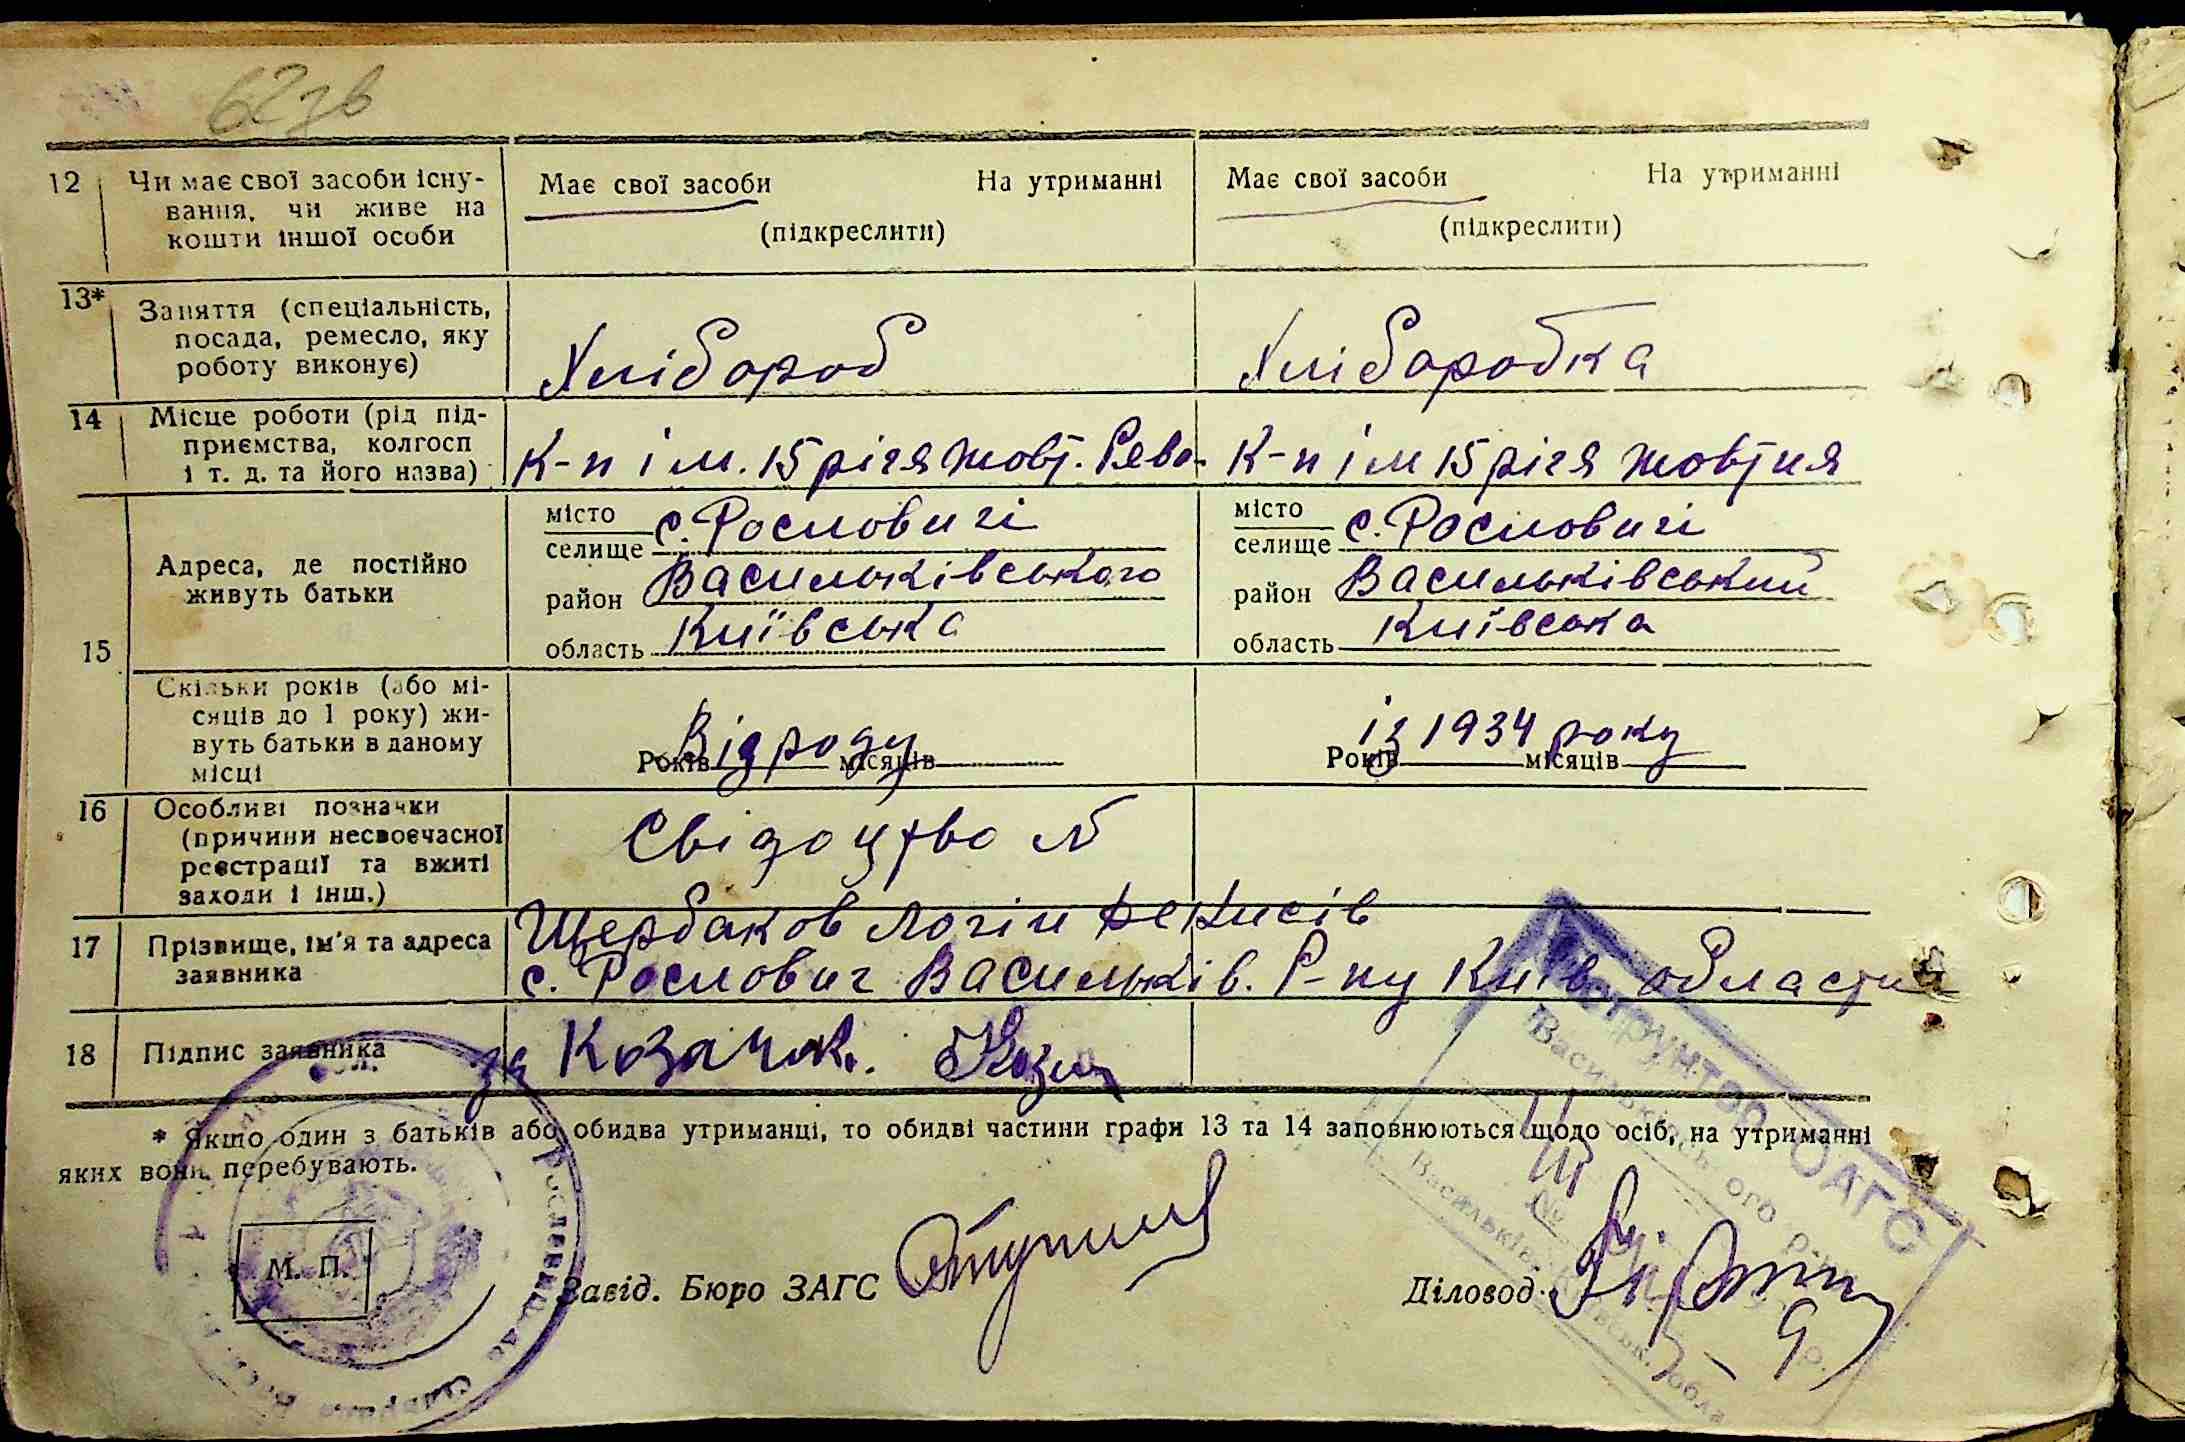 62зв
12 Чи має свої засоби існу- Має свої засоби На утриманні Має свої засоби На утриманні
вання, чи живе на (підкреслити) (підкреслити)
кошти іншої особи
13* Заняття (спеціальність,
посада, ремесло, яку Хлібороб Хліборобка
роботу виконує)
14 Місце роботи (рід під-
приємства, колгосп К-п ім. 15 річя жовт. Рево. К-п ім 15 річя жовтня
і т. д. та його назва)
місто с. Рословичі місто с. Рословичі
селище селище
15 Адреса, де постійно район Васильківського район Васильківський
живуть батьки область Київська область Київська
Скільки років (або мі-
сяців до 1 року) жи- Від роду із 1934 року
вуть батьки в даному Років місяців Років місяців
місці
16 Особливі позначки Свідоцтво №
(причини несвоєчасної
реєстрації та вжиті
заходи і інш.)
17 Прізвище, ім'я та адреса Щербаков Логін Денисів
заявника с. Рослович Васильків. Р-ну Київ. области
18 Підпис заявника за Козачок.
* Якщо один з батьків або обидва утриманці, то обидві частини графи 13 та 14 заповнюються щодо осіб, на утриманні
яких вони перебувають.
М. П.
Завід. Бюро ЗАГС Діловод
ОАГС